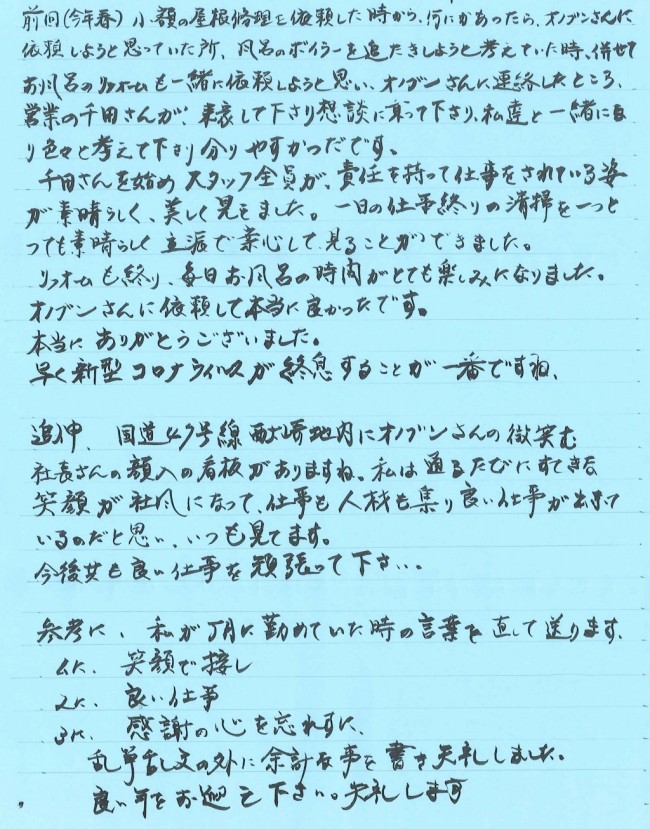 前回(今年春)小額の屋根修理を依頼した時から、何にかあったら、オノブンさんに
依頼しようと思っていた所、風呂のボイラーを追だきしようと考えていた時、併せて
お風呂のリフォームも一緒に依頼しようと思い、オノブンさんに連絡したところ、
営業の千田さんが、来衰して下さり想談に乗って下さり、私達と一緒になり
色々と考えて下さり分りやすかっだです。
千田さんを始めスタッフ全員が、責任を持って仕事をされている姿
が素晴らしく、美しく見えました。一日の仕事終りの清掃を一っと
っても素晴らしく立派で楽心して見ることができました。
リフォームも終り、毎日お風呂の時間がとても楽しみになりました。
オノブンさんに依頼して本当に良かったです。
本当に、ありがとうございました。
早く新型コロナウィルスが終息することが一番ですね、
追伸、国道47号線 地内にオノブンさんの微笑む
社長さんの顔入の看板がありますね。私は通るたびにすてきな
笑顔が社風になって、仕事も人材も集り良い仕事が出きて
いるのだと思い、いつも見てます。
今後共も良い仕事を頑張って下さい。
参考に、私が に勤めていた時の言葉を直して送ります、
1に、笑顔で接し
2に、良い仕事
3に、感謝の心を忘れずに、
乱筆乱文の外に余計な事を書き失礼しました。
良い年をお迎え下さい。失礼します